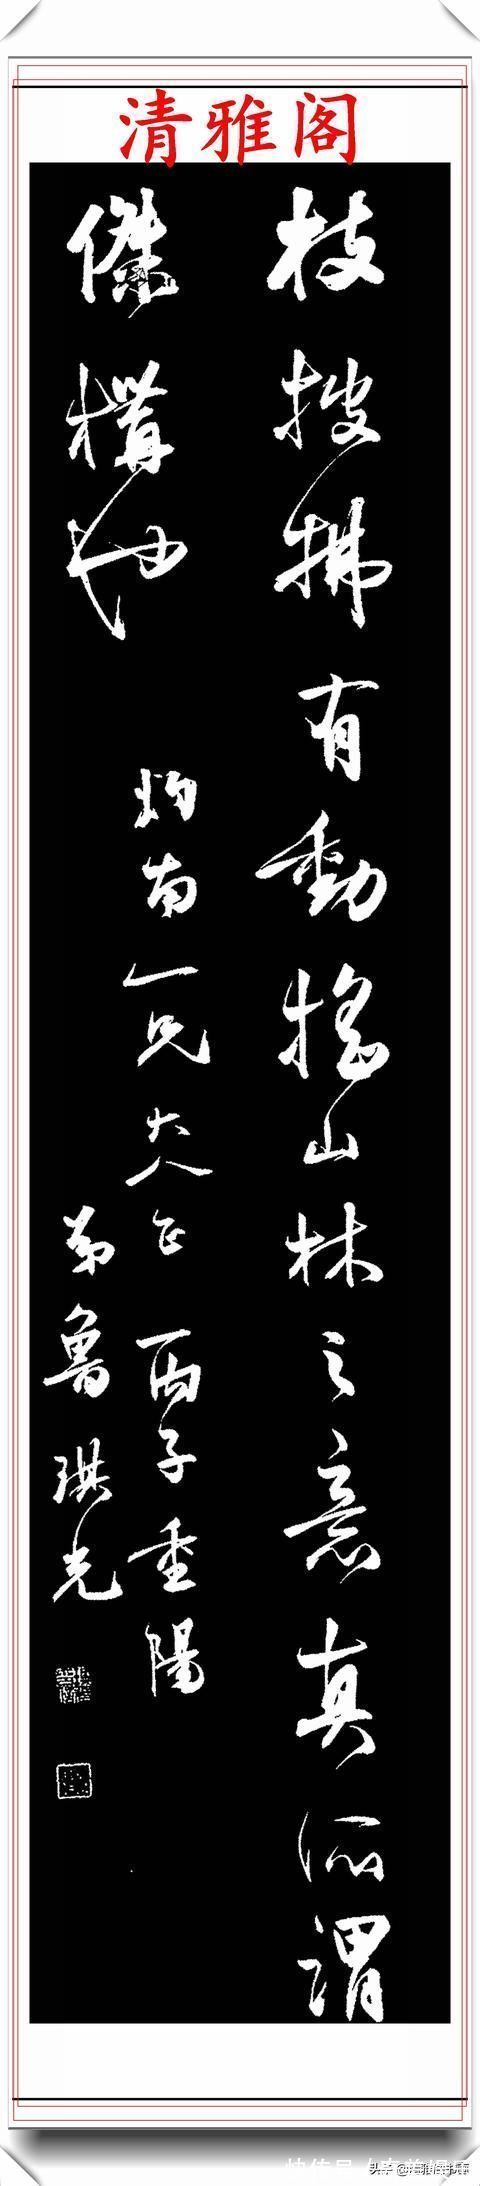 清雅阁
枝披拂有動搖山林之意真所謂
傑構也
灼南一兄大人正 丙子重陽
弟魯琪光